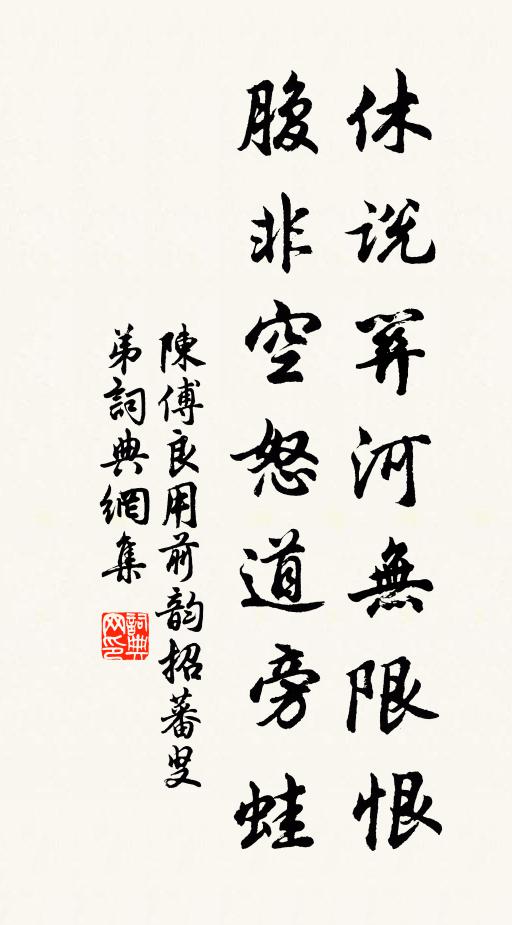 休说関河無限恨
腹非空怒道旁蛙
陳傅良用前韵招蕃叟
弟詞典網集
詞典网印